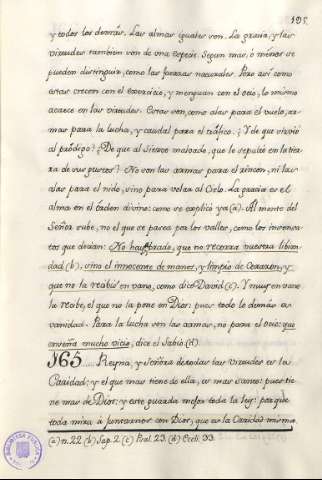 195.
y todos los demás. Las almas iguales son. La gracia, y las
virtudes tambien son de una especie. Segun mas, ó ménos se
pueden distinguir, como las fuerzas naturales. Pero asi como
estas crecen con el exercicio, y menguan con el ocio, lo mismo
acaece en las virtudes. Estas son, como alas para el vuelo, ar-
mas para la lucha, y caudal para el tráfico. ¿Y de que sirvió
al pródigo? ¿De que al Siervo malvado, que le sepultó en la tier-
ra de sus gustos? No son las armas para el rincon, ni las
alas para el nido, sino para volar al Cielo. La gracia es el
alma en el órden divino: como se explicó ya (a). Al monte del
Señor sube, no el que se pasea por los valles, como los insensa-
tos que decian: No haya prado, que no recorra nuestra livian-
dad (b), sino el innocente de manos, y limpio de Corazon, y
que no la recibió en vano, como dice David (c). Y muy en vano
la recibe, el que no la pone en Dios: pues todo lo demás es
vanidad. Para la lucha son las armas, no para el ocio: que
enseña mucho vicio, dice el Sabio (d).
165.... Reyna, y Señora de todas las virtudes es la
Caridad; y el que mas tiene de ella, es mas santo: pues tie-
ne mas de Dios; y este guarda mejor toda la ley: porque
toda mira á juntarnos con Dios, que es la Caridad misma.
(a) n. 22. (b) Sap. 2. (c) Psal. 23. (d) Eccli. 33.
BIBLIOTECA PUBLICA